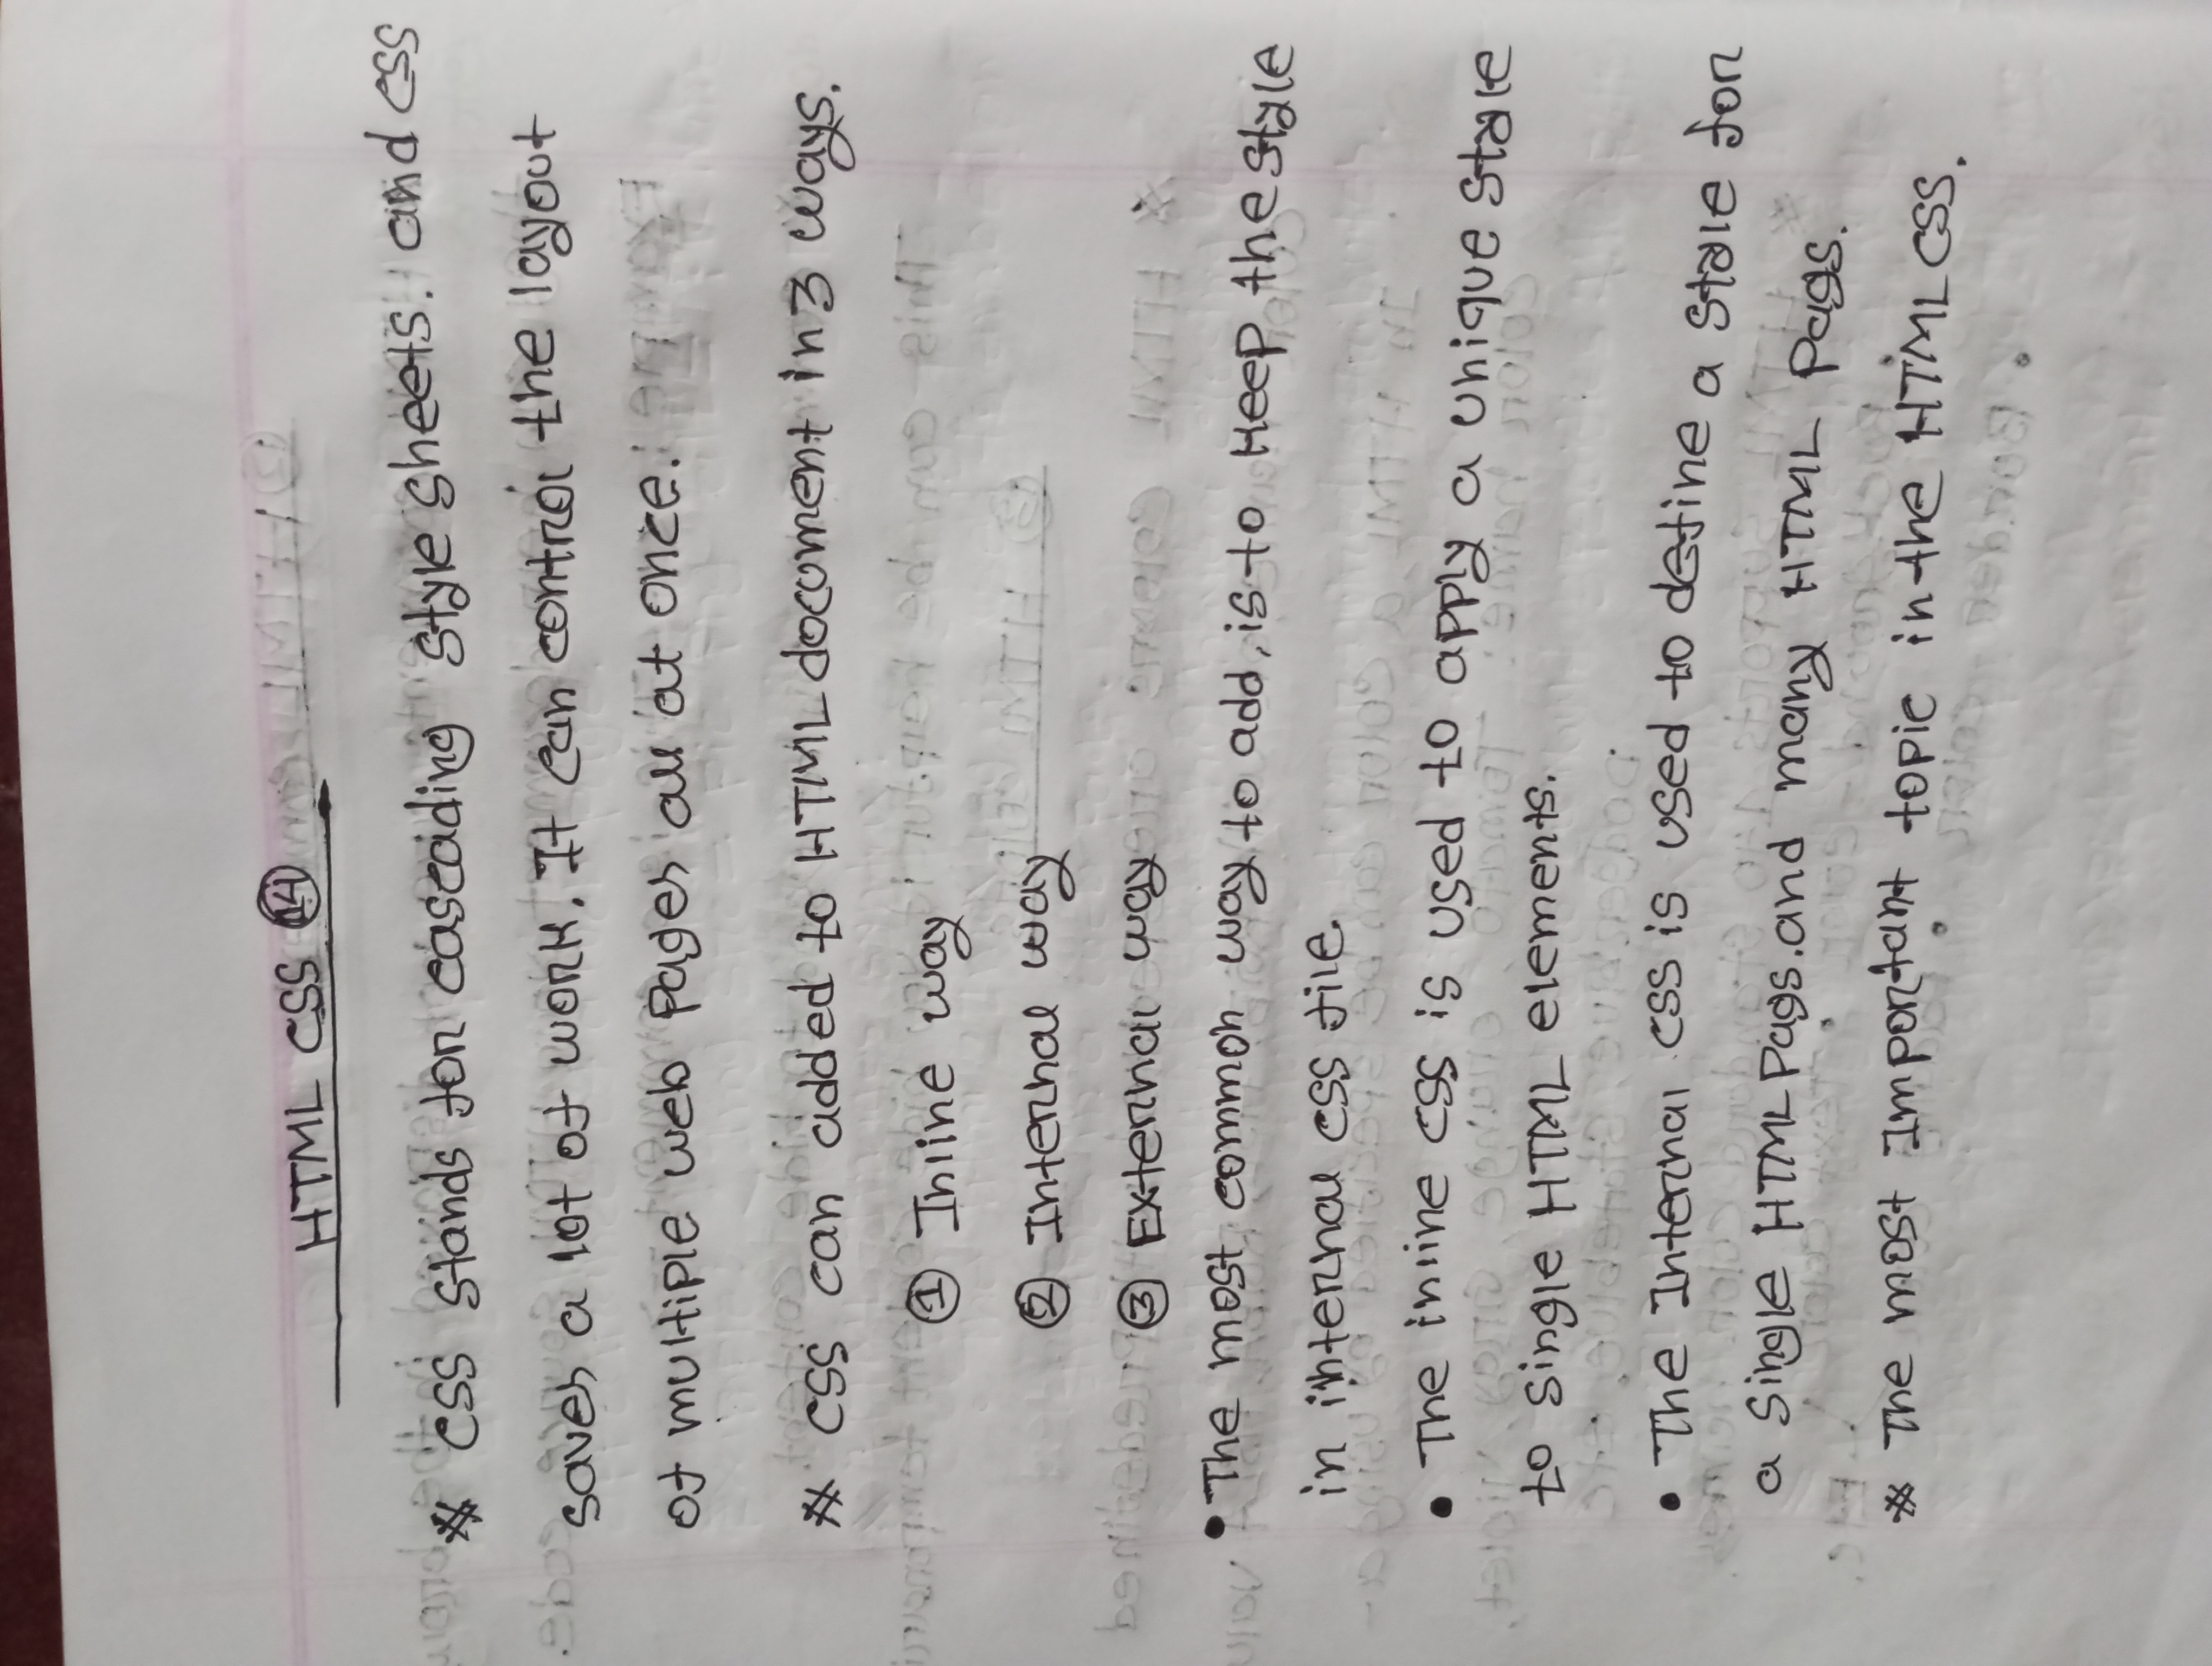 HTML CSS 14
* CSS stands for cascading style sheets. and CSS
saves a lot of work. It can control the layout
of multiple web pages all at once.
* CSS can added to HTML document in 3 ways.
① Inline way
② Internal way
③ External way
• The most common way to add, is to keep the style
in internal CSS file.
• The inline CSS is used to apply a unique style
to single HTML elements.
• The Internal CSS is used to define a style for
a single HTML Pags. and many HTML Pags.
* The most Important topic in the HTML CSS.